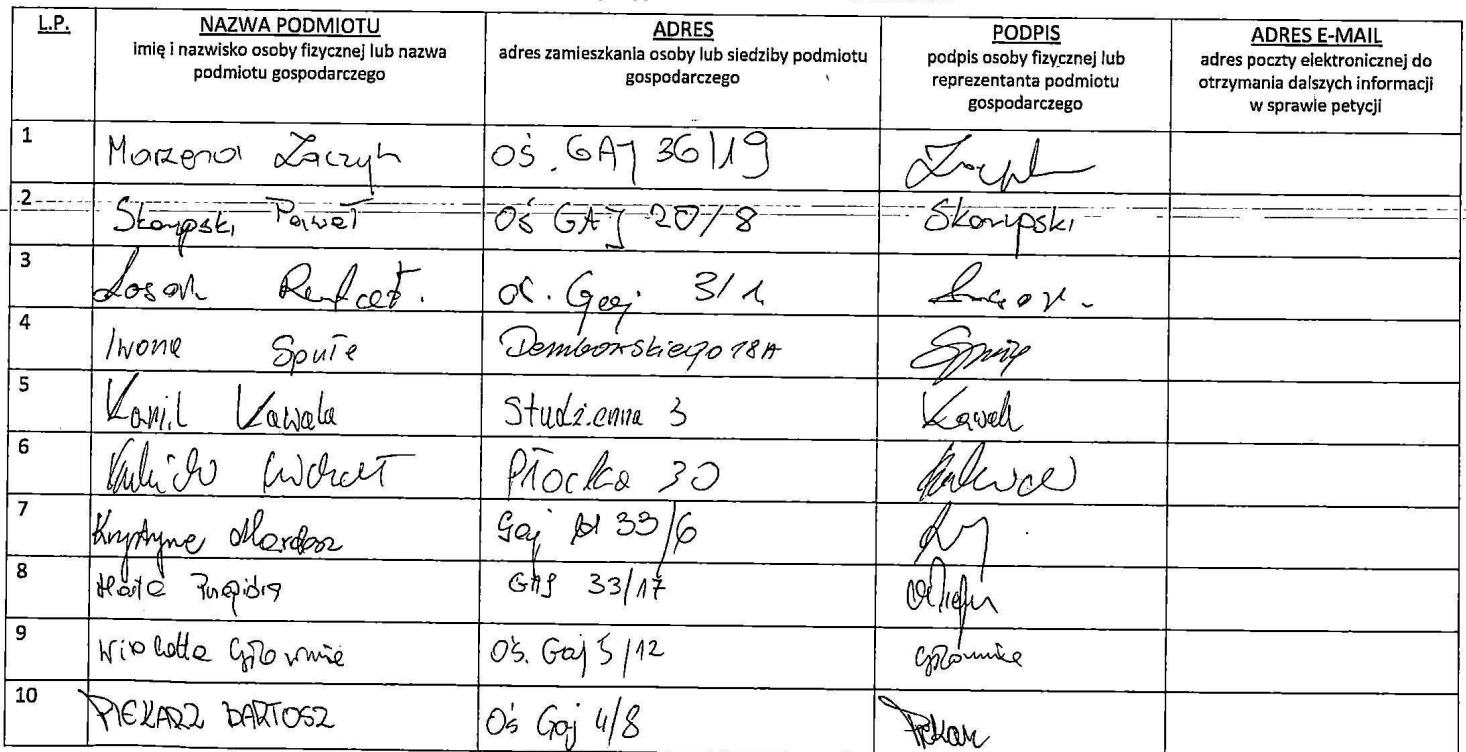 L.P.
NAZWA PODMIOTU
imię i nazwisko osoby fizycznej lub nazwa
podmiotu gospodarczego
ADRES
adres zamieszkania osoby lub siedziby podmiotu
gospodarczego
PODPIS
podpis osoby fizycznej lub
reprezentanta podmiotu
gospodarczego
ADRES E-MAIL
adres poczty elektronicznej do
otrzymania dalszych informacji
w sprawie petycji
1
Marzena Łaczyn
oś. GAJ 36/19
2
Skorupski Paweł
Oś GAJ 20/8
Skorupski
3
Łosak
Gaj 3/1
4
Iwona
Dembowskiego 18A
5
Kamil Kawala
Studzienna 3
6
Płocka 30
7
Krystyna Mardosz
Gaj 33/6
8
GAJ 33/17
9
Wioletta
Oś. Gaj 5/12
10
PIEKARZ BARTOSZ
Oś Gaj 4/8
Piekarz